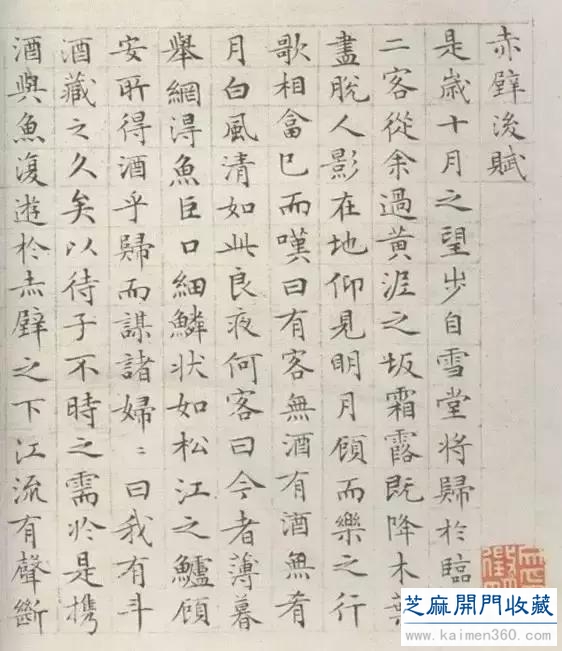 赤壁後賦
是歲十月之望步自雪堂將歸於臨
二客從余過黃泥之坂霜露既降木葉
盡脫人影在地仰見明月顧而樂之行
歌相畣已而嘆曰有客無酒有酒無肴
月白風清如此良夜何客曰今者薄暮
舉網得魚巨口細鱗狀如松江之鱸顧
安所得酒乎歸而謀諸婦〻曰我有斗
酒藏之久矣以待子不時之需於是携
酒與魚復遊於赤壁之下江流有聲斷
芝麻開門收藏
www.kaimen360.com